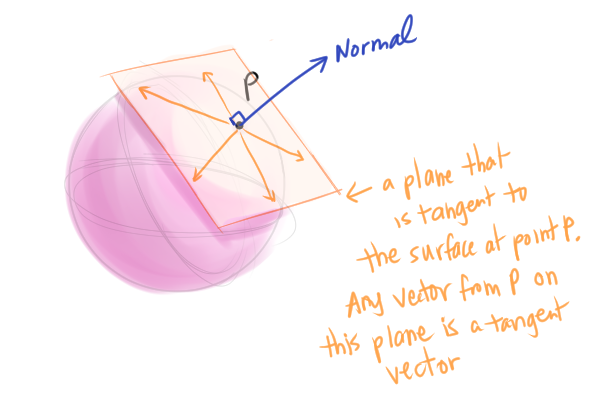 Normal
P
a plane that
is tangent to
the surface at point P.
Any vector from P on
this plane is a tangent
vector